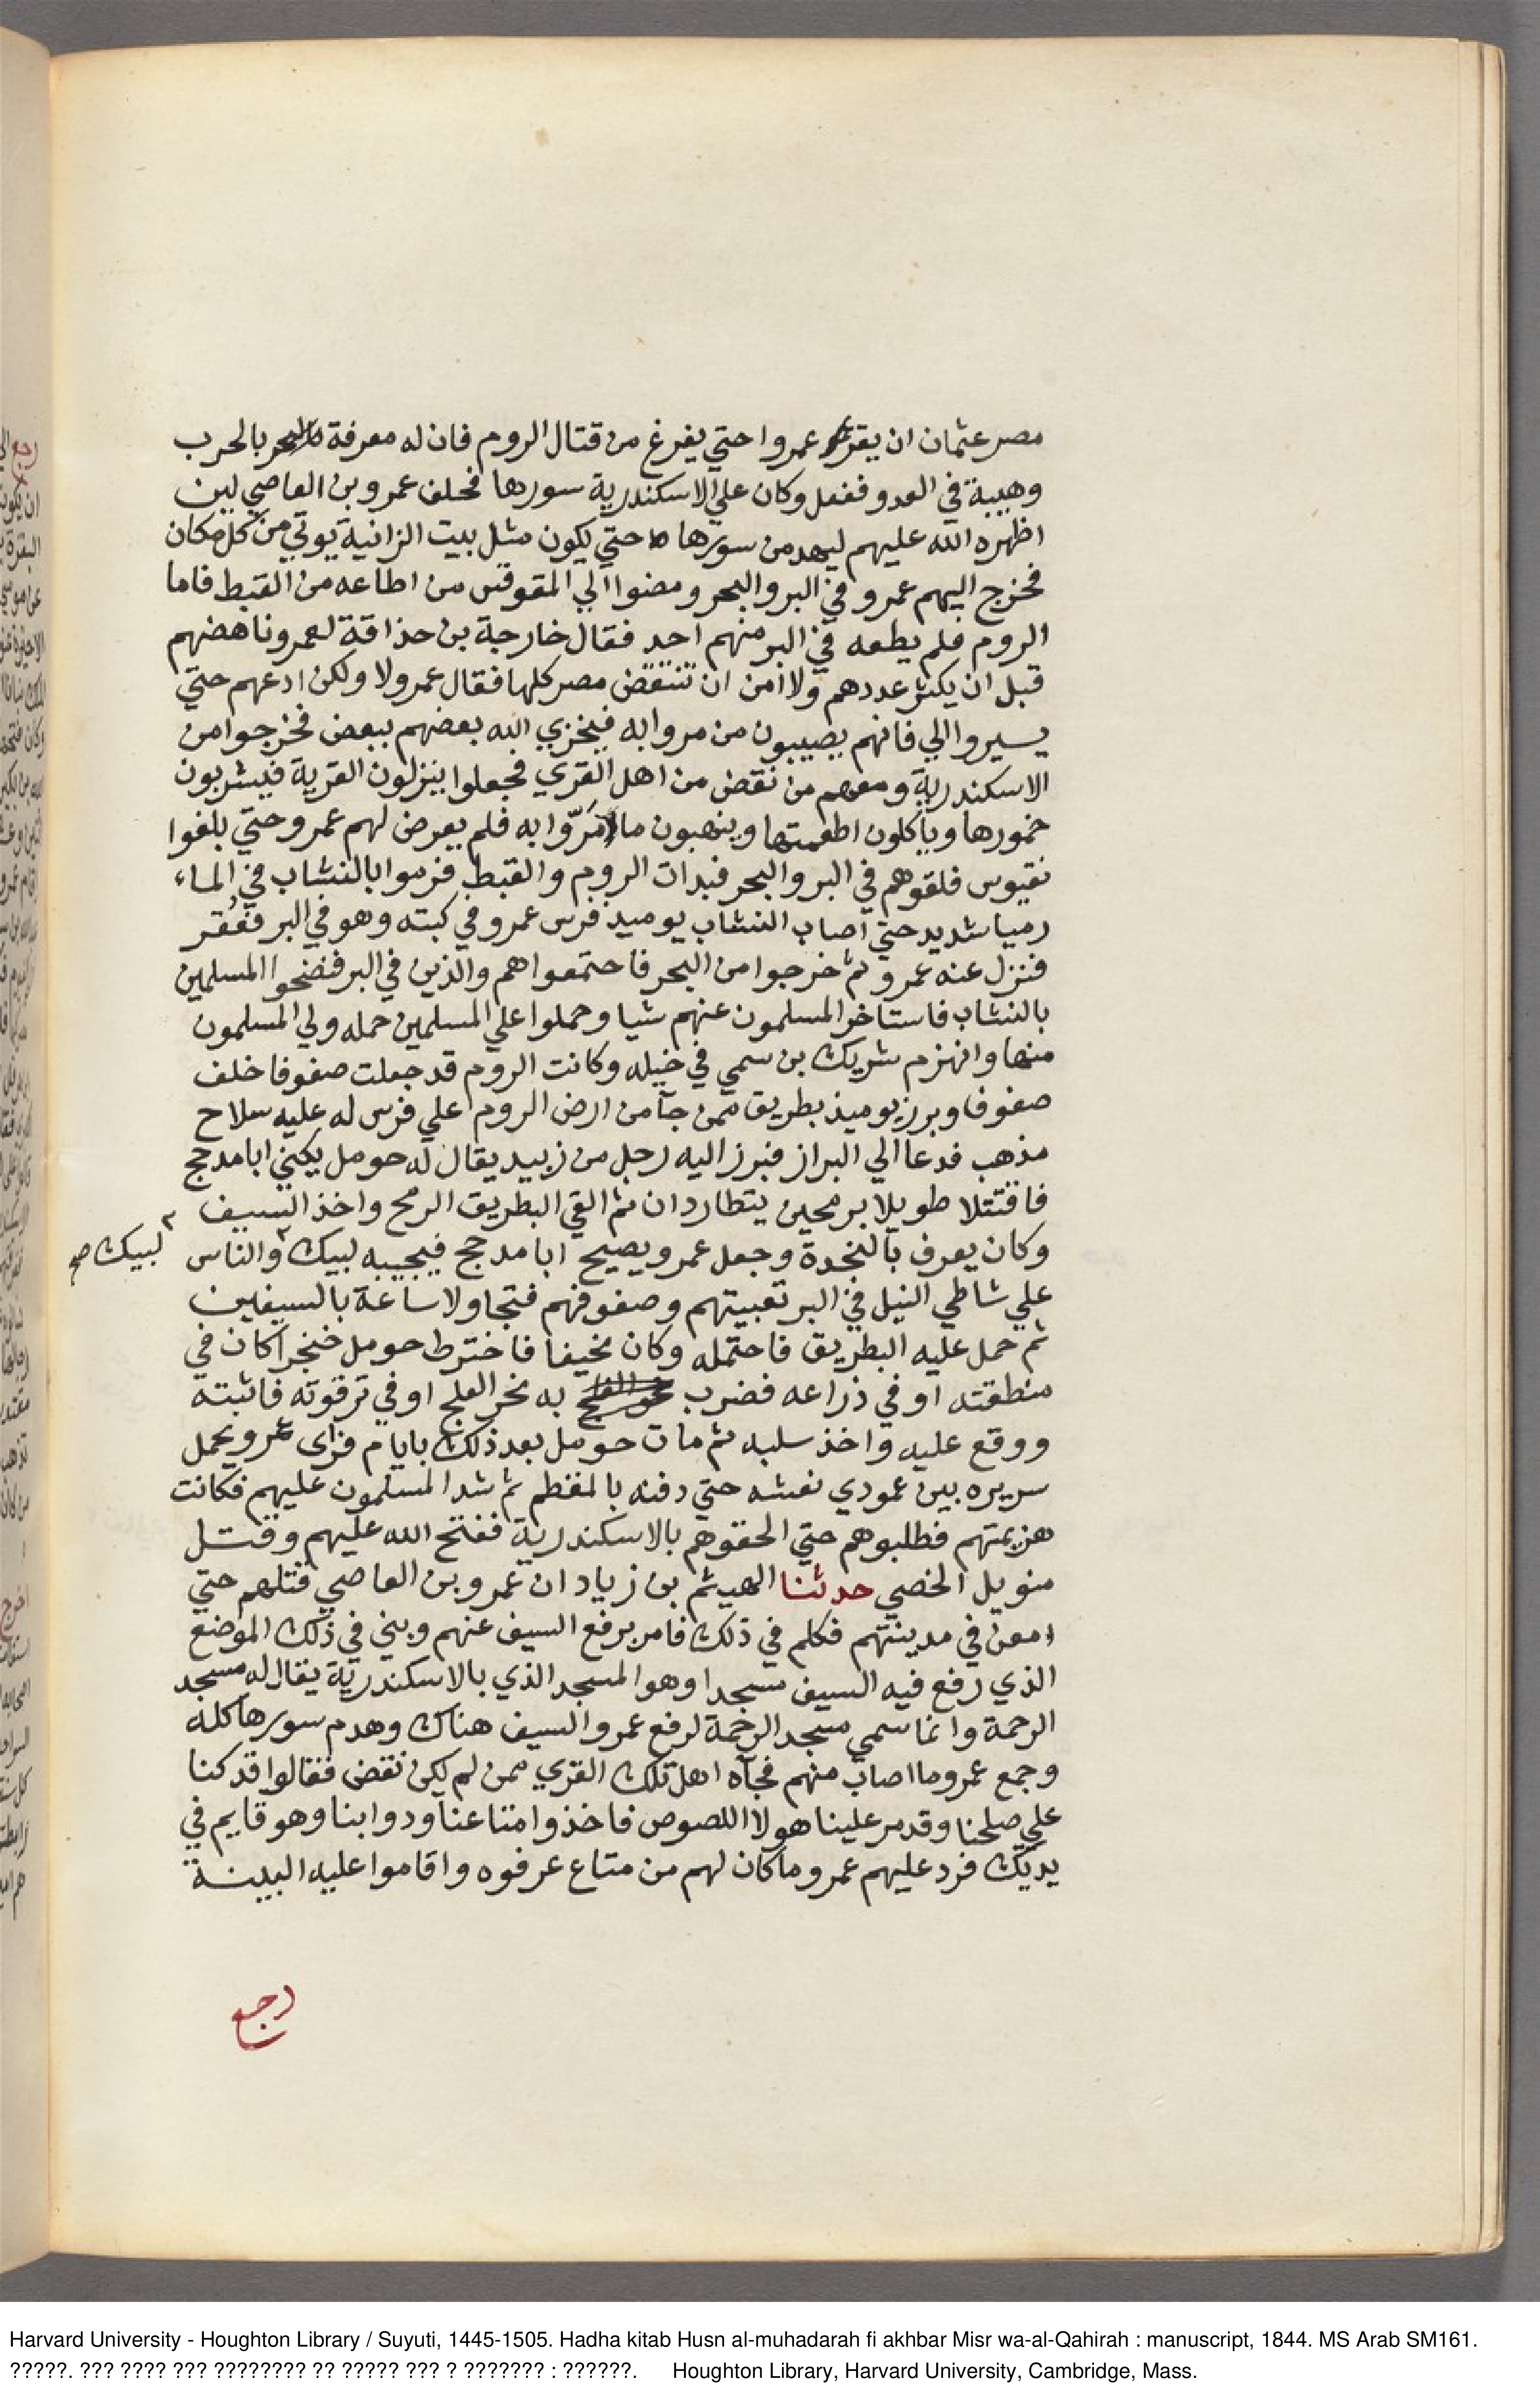 مصر عثمان ان يقر عمروا حتي يفرغ من قتال الروم فان له معرفة بالحرب
وهيبة في العدو ففعل وكان علي الاسكندرية سورها فحلف عمرو بن العاصي لين
اظهره الله عليهم ليهدمن سورها حتي يكون مثل بيت الزانية يوتي من كل مكان
فخرج اليهم عمرو في البر والبحر ومضوا الي المقوقس من اطاعه من القبط فاما
الروم فلم يطعه في البر منهم احد فقال خارجة بن حذاقة لعمرو ناهضهم
قبل ان يكثر عددهم ولا امن ان تنتقض مصر كلها فقال عمرو لا ولكن ادعهم حتي
يسيروا الي فانهم يصيبون من مروا به فيخزي الله بعضهم ببعض فخرجوا من
الاسكندرية ومعهم من نقض من اهل القري فجعلوا ينزلون القرية فيشربون
خمورها وياكلون اطعمتها وينهبون ما مَرّوا به فلم يعرض لهم عمرو حتي بلغوا
نقيوس فلقوهم في البر والبحر فبدات الروم والقبط فرموا بالنشاب في الماء
رميا شديد حتي اصاب النشاب يوميذ فرس عمرو في كبته وهو في البر فعُقر
فنزل عنه عمرو ثم خرجوا من البحر فاجتمعوا هم والذين في البر فنضحوا المسلمين
بالنشاب فاستاخر المسلمون عنهم شيا وحملوا علي المسلمين حمله ولي المسلمون
منها وانهزم شريك بن سمي في خيله وكانت الروم قد جعلت صفوفا خلف
صفوفا وبرز يوميذ بطريق ممن جآ من ارض الروم علي فرس له عليه سلاح
مذهب فدعا الي البراز فبرز اليه رجل من زبيد يقال له حومل يكني ابا مدجج
فاقتتلا طويلا برمحين يتطاردان ثم القي البطريق الرمح واخذ السيف
وكان يعرف بالنخدة وجعل عمرو يصيح ابا مدجج فيجيبه لبيك والناس
لبيك صح
علي شاطي النيل في البر تعبيتهم وصفوفهم فتجاولا ساعة بالسيفين
ثم حمل عليه البطريق فاحتمله وكان نحيفا فاخترط حومل خنجرا كان في
منطقته او في ذراعه فضرب به نحر العلج او في ترقوته فاثبته
ووقع عليه واخذ سلبه ثم مات حومل بعد ذلك بايام فراى عمرو يحمل
سريره بين عمودي نعشه حتي دفنه بالمقطم ثم شد المسلمون عليهم فكانت
هزيمتهم فطلبوهم حتي الحقوهم بالاسكندرية ففتح الله عليهم وقتل
منويل الخصي حدثنا الهيثم بن زياد ان عمرو بن العاصي قتلهم حتي
امعن في مدينتهم فكلم في ذلك فامر برفع السيف عنهم وبني في ذلك الموضع
الذي رفع فيه السيف مسجدا وهو المسجد الذي بالاسكندرية يقال له مسجد
الرحمة وانما سمي مسجد الرحمة لرفع عمرو السيف هناك وهدم سورها كله
وجمع عمرو ما اصاب منهم فجآه اهل تلك القري ممن لم لكن نقض فقالوا قد كنا
علي صلحنا وقد مر علينا هولا اللصوص فاخذوا متاعنا ودوابنا وهو قايم في
يديك فرد عليهم عمرو ما كان لهم من متاع عرفوه واقاموا عليه البينة
رجع
Harvard University - Houghton Library / Suyuti, 1445-1505. Hadha kitab Husn al-muhadarah fi akhbar Misr wa-al-Qahirah : manuscript, 1844. MS Arab SM161.
?????. ??? ???? ??? ???????? ?? ????? ??? ? ??????? : ??????. Houghton Library, Harvard University, Cambridge, Mass.